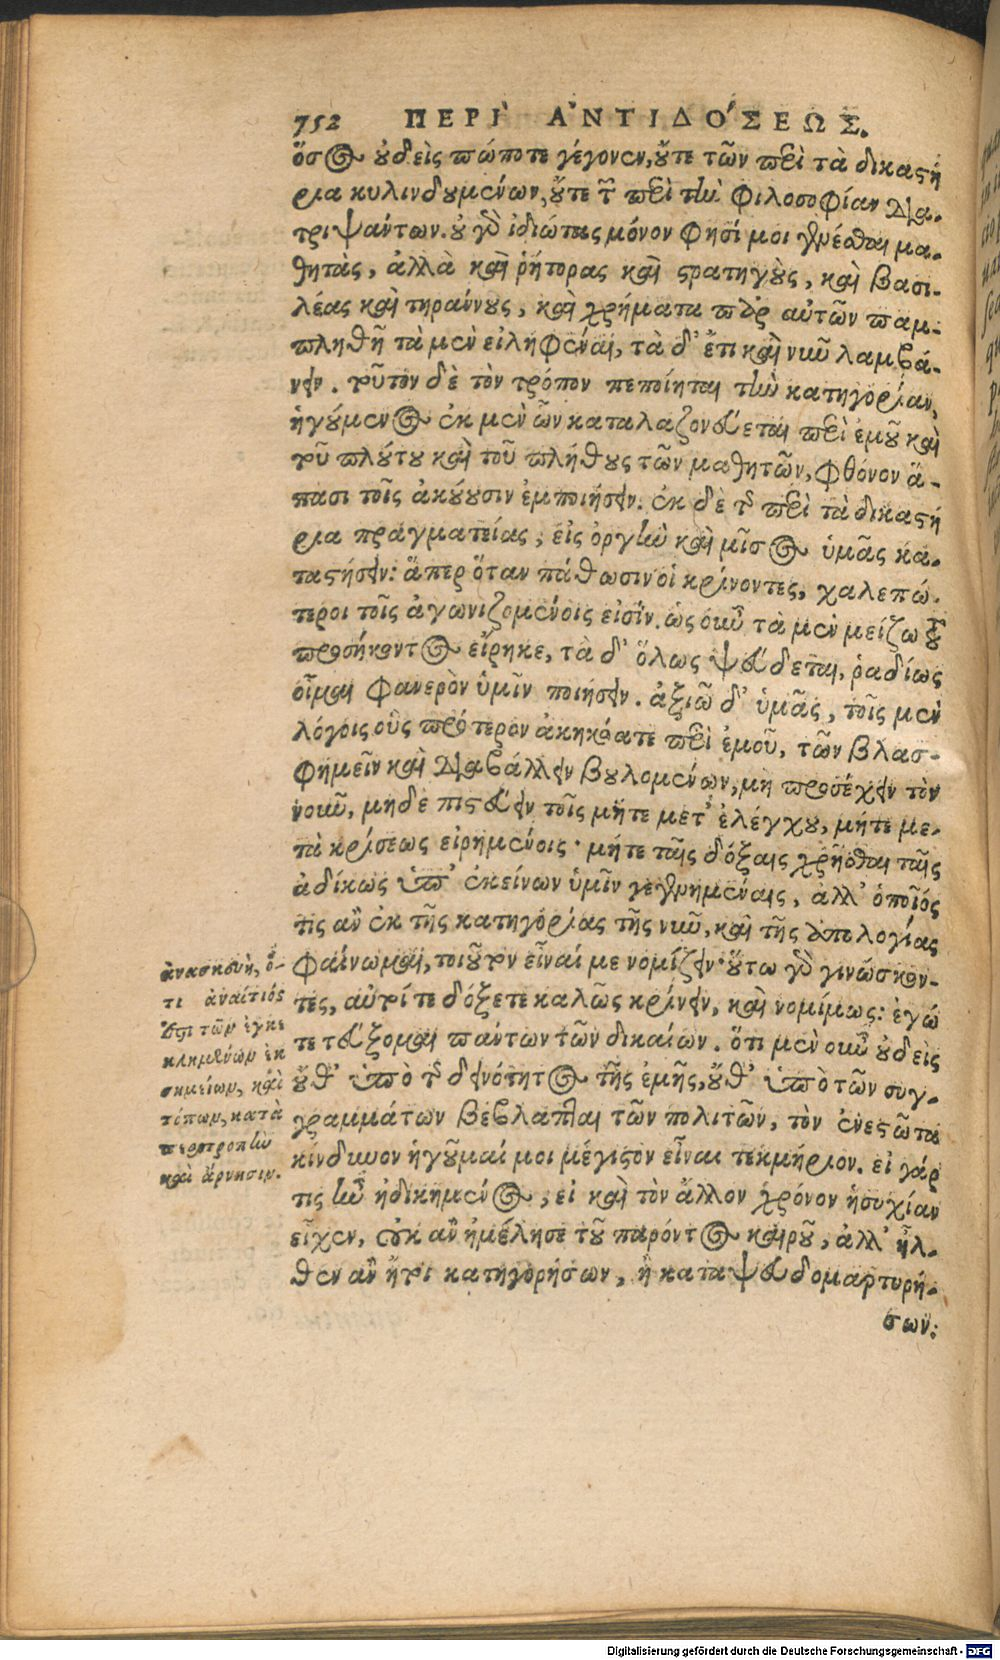 752 ΠΕΡῚ ἈΝΤΙΔΌΣΕΩΣ.
ὅσος οὐδεὶς πώποτε γέγονεν, οὔτε τῶν περὶ τὰ δικαστή
ρια κυλινδουμένων, οὔτε τῶν περὶ τὴν φιλοσοφίαν δια-
τριψάντων. οὐ γὰρ ἰδιώτας μόνον φησί μοι γενέσθαι μα-
θητὰς, ἀλλὰ καὶ ῥήτορας καὶ στρατηγοὺς, καὶ βασι-
λέας καὶ τηράννους, καὶ χρήματα παρ' αὐτῶν παμ-
πληθῆ τὰ μὲν εἰληφέναι, τὰ δ' ἔτι καὶ νῦν λαμβά-
νειν. τοῦτον δὲ τὸν τρόπον πεποίηται τὴν κατηγορίαν,
ἡγούμενος ἐκ μὲν ὧν καταλαζονεύεται περὶ ἐμοῦ καὶ
τοῦ πλούτου καὶ τοῦ πλήθους τῶν μαθητῶν, φθόνον ἅ-
πασι τοῖς ἀκούουσιν ἐμποιήσειν. ἐκ δὲ τῆς περὶ τὰ δικαστή
ρια πραγματείας, εἰς ὀργὴν καὶ μῖσος ὑμᾶς κα-
ταστήσειν: ἅπερ ὅταν πάθωσιν οἱ κρίνοντες, χαλεπώ-
τεροι τοῖς ἀγωνιζομένοις εἰσίν. ὡς οὖν τὰ μὲν μείζω τοῦ
προσήκοντος εἴρηκε, τὰ δ' ὅλως ψεύδεται, ῥαδίως
οἶμαι φανερὸν ὑμῖν ποιήσειν. ἀξιῶ δ' ὑμᾶς, τοῖς μὲν
λόγοις οὓς πρότερον ἀκηκόατε περὶ ἐμοῦ, τῶν βλασ-
φημεῖν καὶ διαβάλλειν βουλομένων, μὴ προσέχειν τὸν
νοῦν, μηδὲ πιστεύειν τοῖς μήτε μετ' ἐλέγχου, μήτε με-
τὰ κρίσεως εἰρημένοις· μήτε ταῖς δόξαις χρῆσθαι ταῖς
ἀδίκως ὑπ' ἐκείνων ὑμῖν γεγενημέναις, ἀλλ' ὁποῖός
τις ἂν ἐκ τῆς κατηγορίας τῆς νῦν, καὶ τῆς ἀπολογίας
φαίνωμαι, τοιοῦτον εἶναί με νομίζειν· οὕτω γὰρ γινώσκον-
τες, αὐτοί τε δόξετε καλῶς κρίνειν, καὶ νομίμως: ἐγώ
τε τεύξομαι πάντων τῶν δικαίων. ὅτι μὲν οὖν οὐδεὶς
οὔθ' ὑπὸ τῆς δεινότητος τῆς ἐμῆς, οὔθ' ὑπὸ τῶν συγ-
γραμμάτων βέβλαπται τῶν πολιτῶν, τὸν ἐνεστῶτα
κίνδυνον ἡγοῦμαί μοι μέγιστον εἶναι τεκμήριον. εἰ γάρ
τις ἦν ἠδικημένος, εἰ καὶ τὸν ἄλλον χρόνον ἡσυχίαν
εἶχεν, οὐκ ἂν ἠμέλησε τοῦ παρόντος καιροῦ, ἀλλ' ἦλ-
θεν ἂν ἤτοι κατηγορήσων, ἢ καταψευδομαρτυρή-
σων:
ἀνασκευὴ, ὅ-
τι ἀναίτιός
ἐστι τῶν ἐγκε
κλημένων ἐκ
σημείων, καὶ
τόπων, κατὰ
περιτροπὴν
καὶ ἄρνησιν.
Digitalisierung gefördert durch die Deutsche Forschungsgemeinschaft - DFG